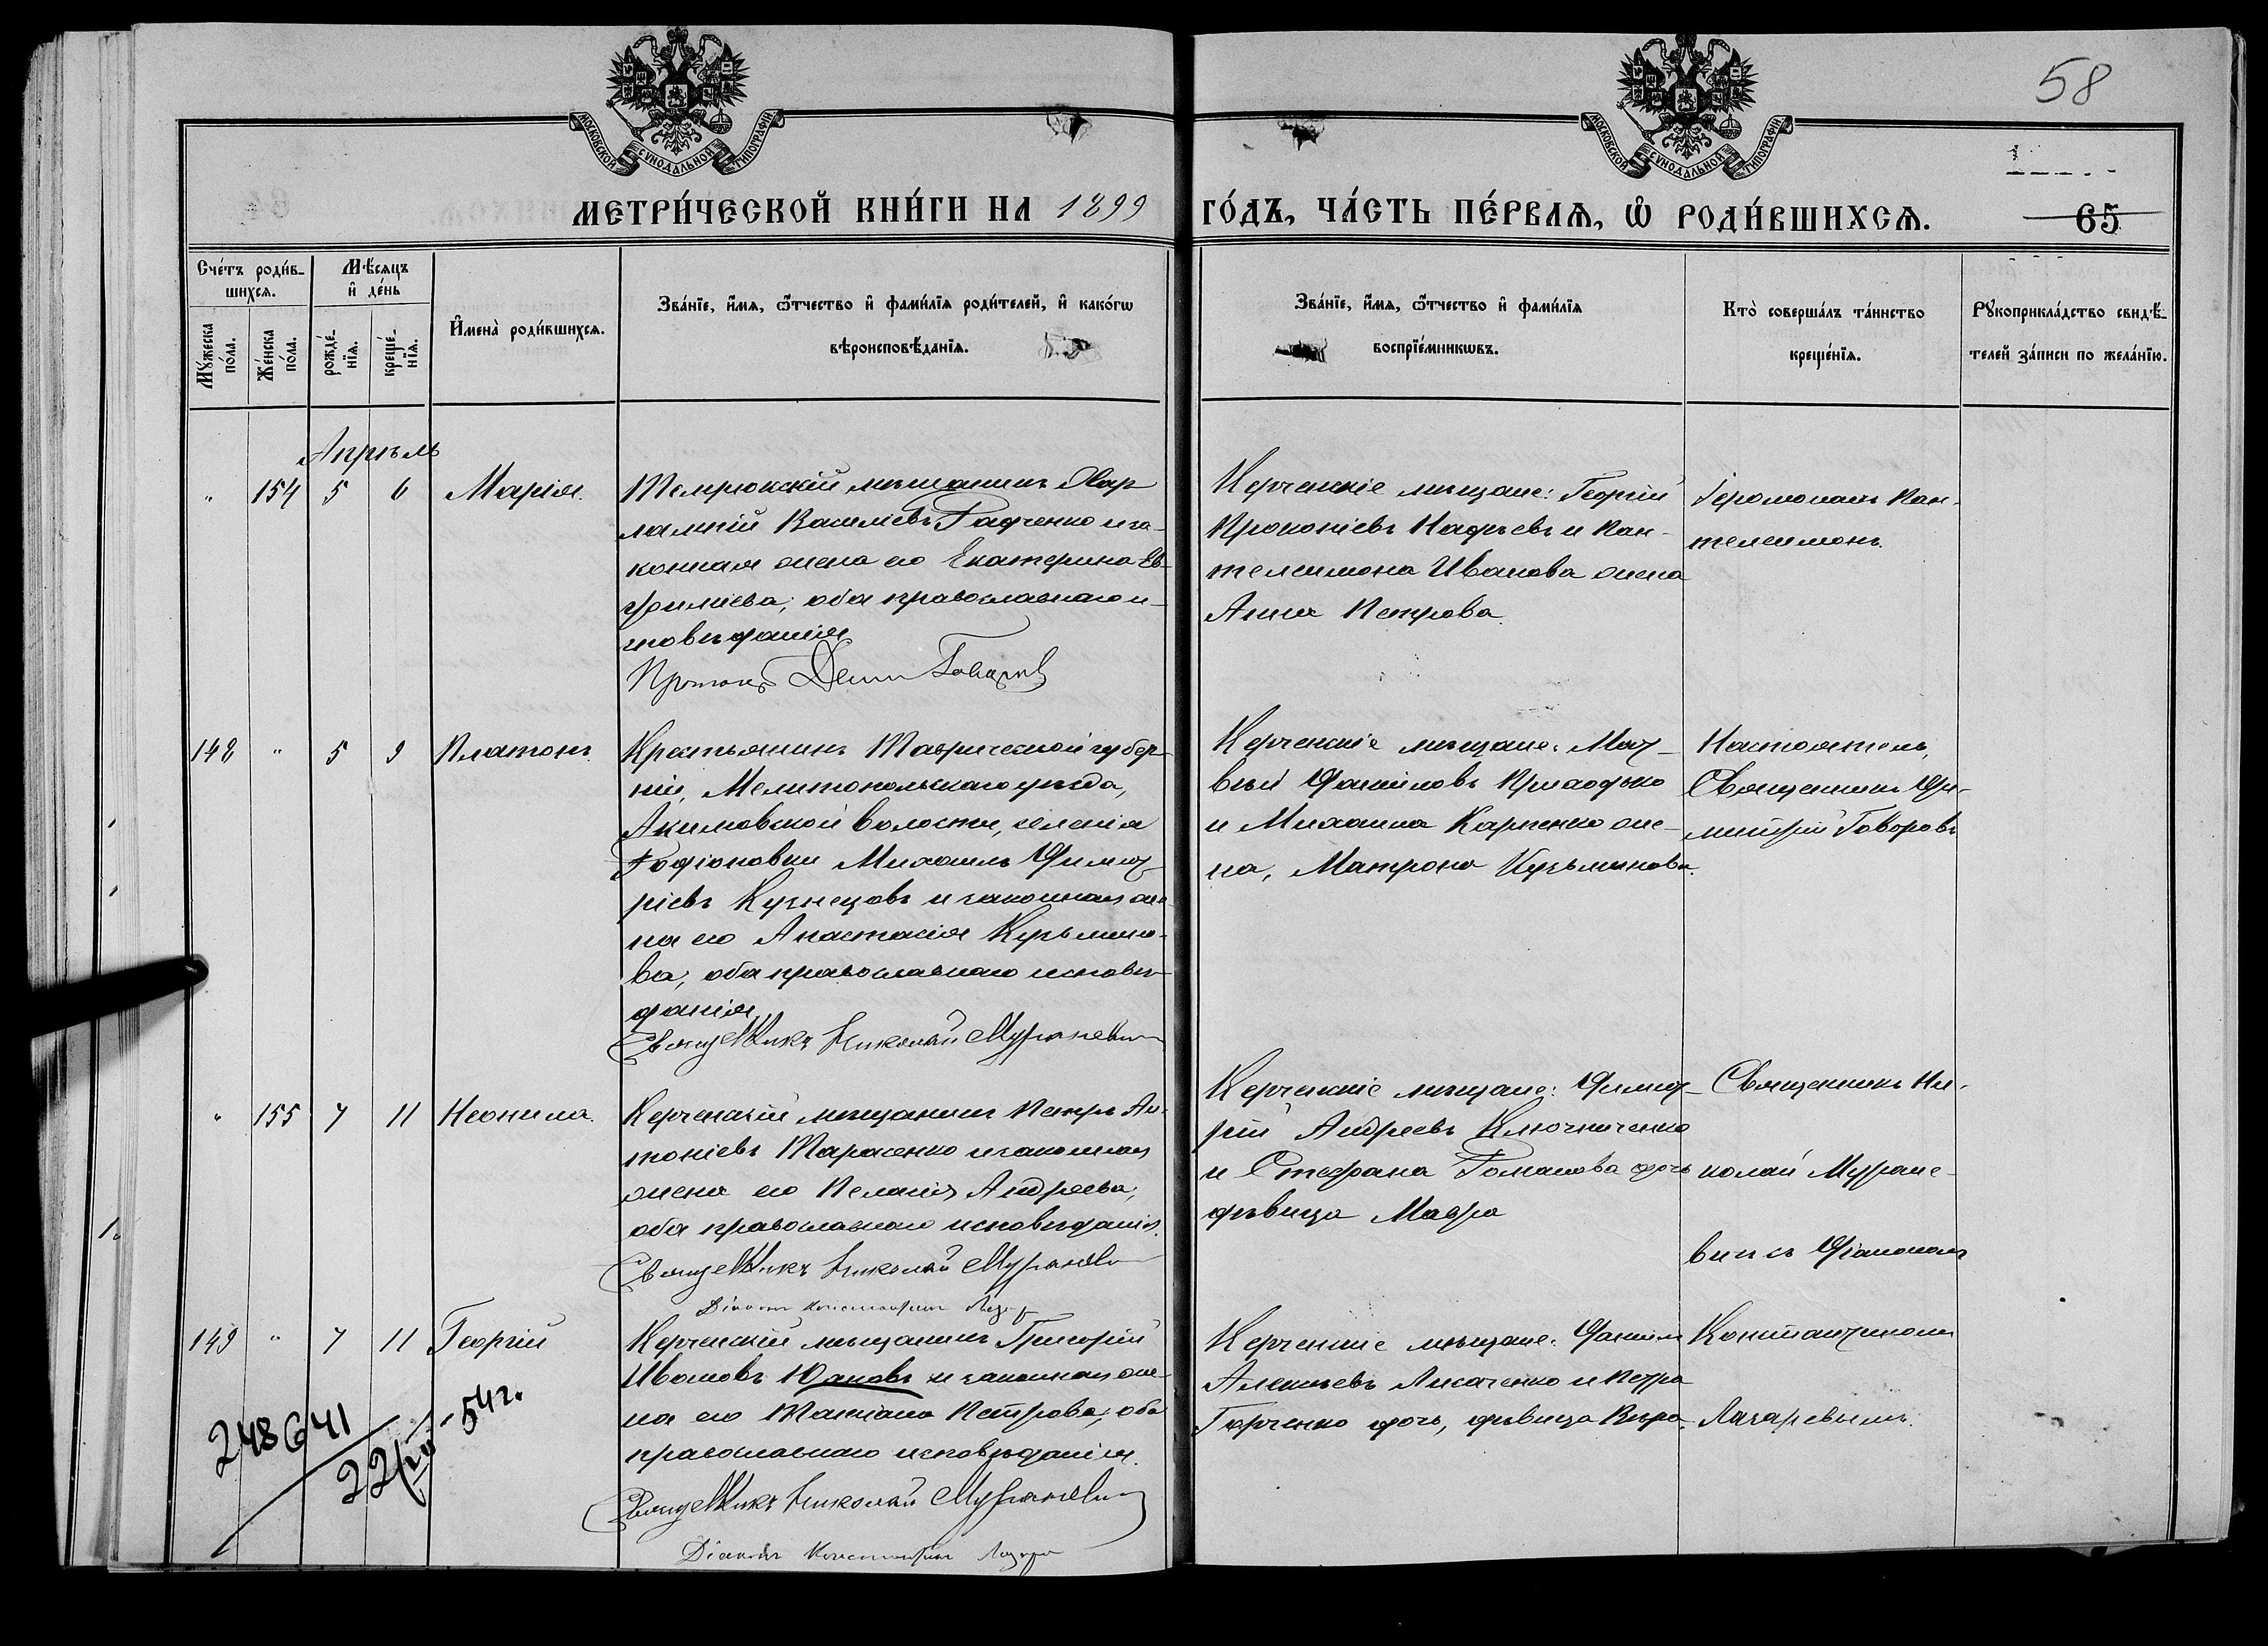 МОСКОВСКОЙ СУНОДАЛЬНОЙ ТИПОГРАФІИ
МОСКОВСКОЙ СУНОДАЛЬНОЙ ТИПОГРАФІИ
58
МЕТРИ́ЧЕСКОЙ КНИ́ГИ НА 1899 ГО́ДЪ, ЧА́СТЬ ПЕ́РВАѦ, Ѡ҆ РОДИ́ВШИХСѦ. 65
Сче́тъ роди́в-
шихсѧ.
Мѣ́сѧцъ
и҆ де́нь
Мꙋ́жеска по́ла.
Же́нска по́ла.
рожде́нїѧ.
креще́нїѧ.
И҆мена̀ роди́вшихсѧ.
Зва́нїе, и҆́мѧ, ѻ҆́тчество и҆ фами́лїѧ роди́телей, и҆ како́гѡ
вѣроисповѣ́данїѧ.
Зва́нїе, и҆́мѧ, ѻ҆́тчество и҆ фами́лїѧ
воспрїе́мникѡвъ.
Кто̀ соверша́лъ та́инство
креще́нїѧ.
Рꙋкоприкла́дство свидѣ́-
телей за́писи по жела́нїю.
Апрѣль
" 154 5 6 Марія.
Темрюкскій мѣщанинъ Хар
лампій Василіевъ Гадченко и за-
конная жена его Екатерина Ев-
филіева; оба православнаго и-
сповѣданія
Керченскіе мѣщане: Георгій
Прокопіевъ Нафѣевъ и Пан-
телеимона Иванова жена
Анна Петрова.
Іеромонахъ Пан-
телеимонъ.
148 " 5 9 Платонъ.
Крестьянинъ Таврической губер-
ніи, Мелитопольскаго уѣзда,
Акимовской волости, селенія
Родіоновки Михаилъ Димит-
ріевъ Кузнецовъ и законная же-
на его Анастасія Кузьмино-
ва, оба православнаго исповѣ-
данія
Священникъ Николай Мураневич
Керченскіе мѣщане: Мат-
вѣй Даниловъ Приходько
и Михаила Карпенко же-
на, Матрона Кузьминова.
Настоятель,
Священникъ Ди-
митрій Говоровъ
" 155 7 11 Неонила.
Керченскій мѣщанинъ Петръ Ан-
тоніевъ Тарасенко и законная
жена его Пелагія Андреева,
оба православнаго исповѣданія.
Священникъ Николай Мураневич
Діаконъ Константинъ Лазар
Керченскіе мѣщане: Димит-
рій Андреевъ Ключниченко
и Стефана Романова дочь
дѣвица Мавра
Священникъ Ни-
колай Муране-
вичъ съ Діакономъ
149 " 7 11 Георгій
Керченскій мѣщанинъ Григорій
Ивановъ Юдановъ и законная же-
на его Татіана Петрова, оба
православнаго исповѣданія.
Священникъ Николай Мураневич
Діаконъ Константинъ Лазар
Керченскіе мѣщане: Даниилъ
Алексѣевъ Лисаченко и Петра
Горченко дочь, дѣвица Вѣра.
Константиномъ
Лазаревымъ.
248641
22/IV-54 г.